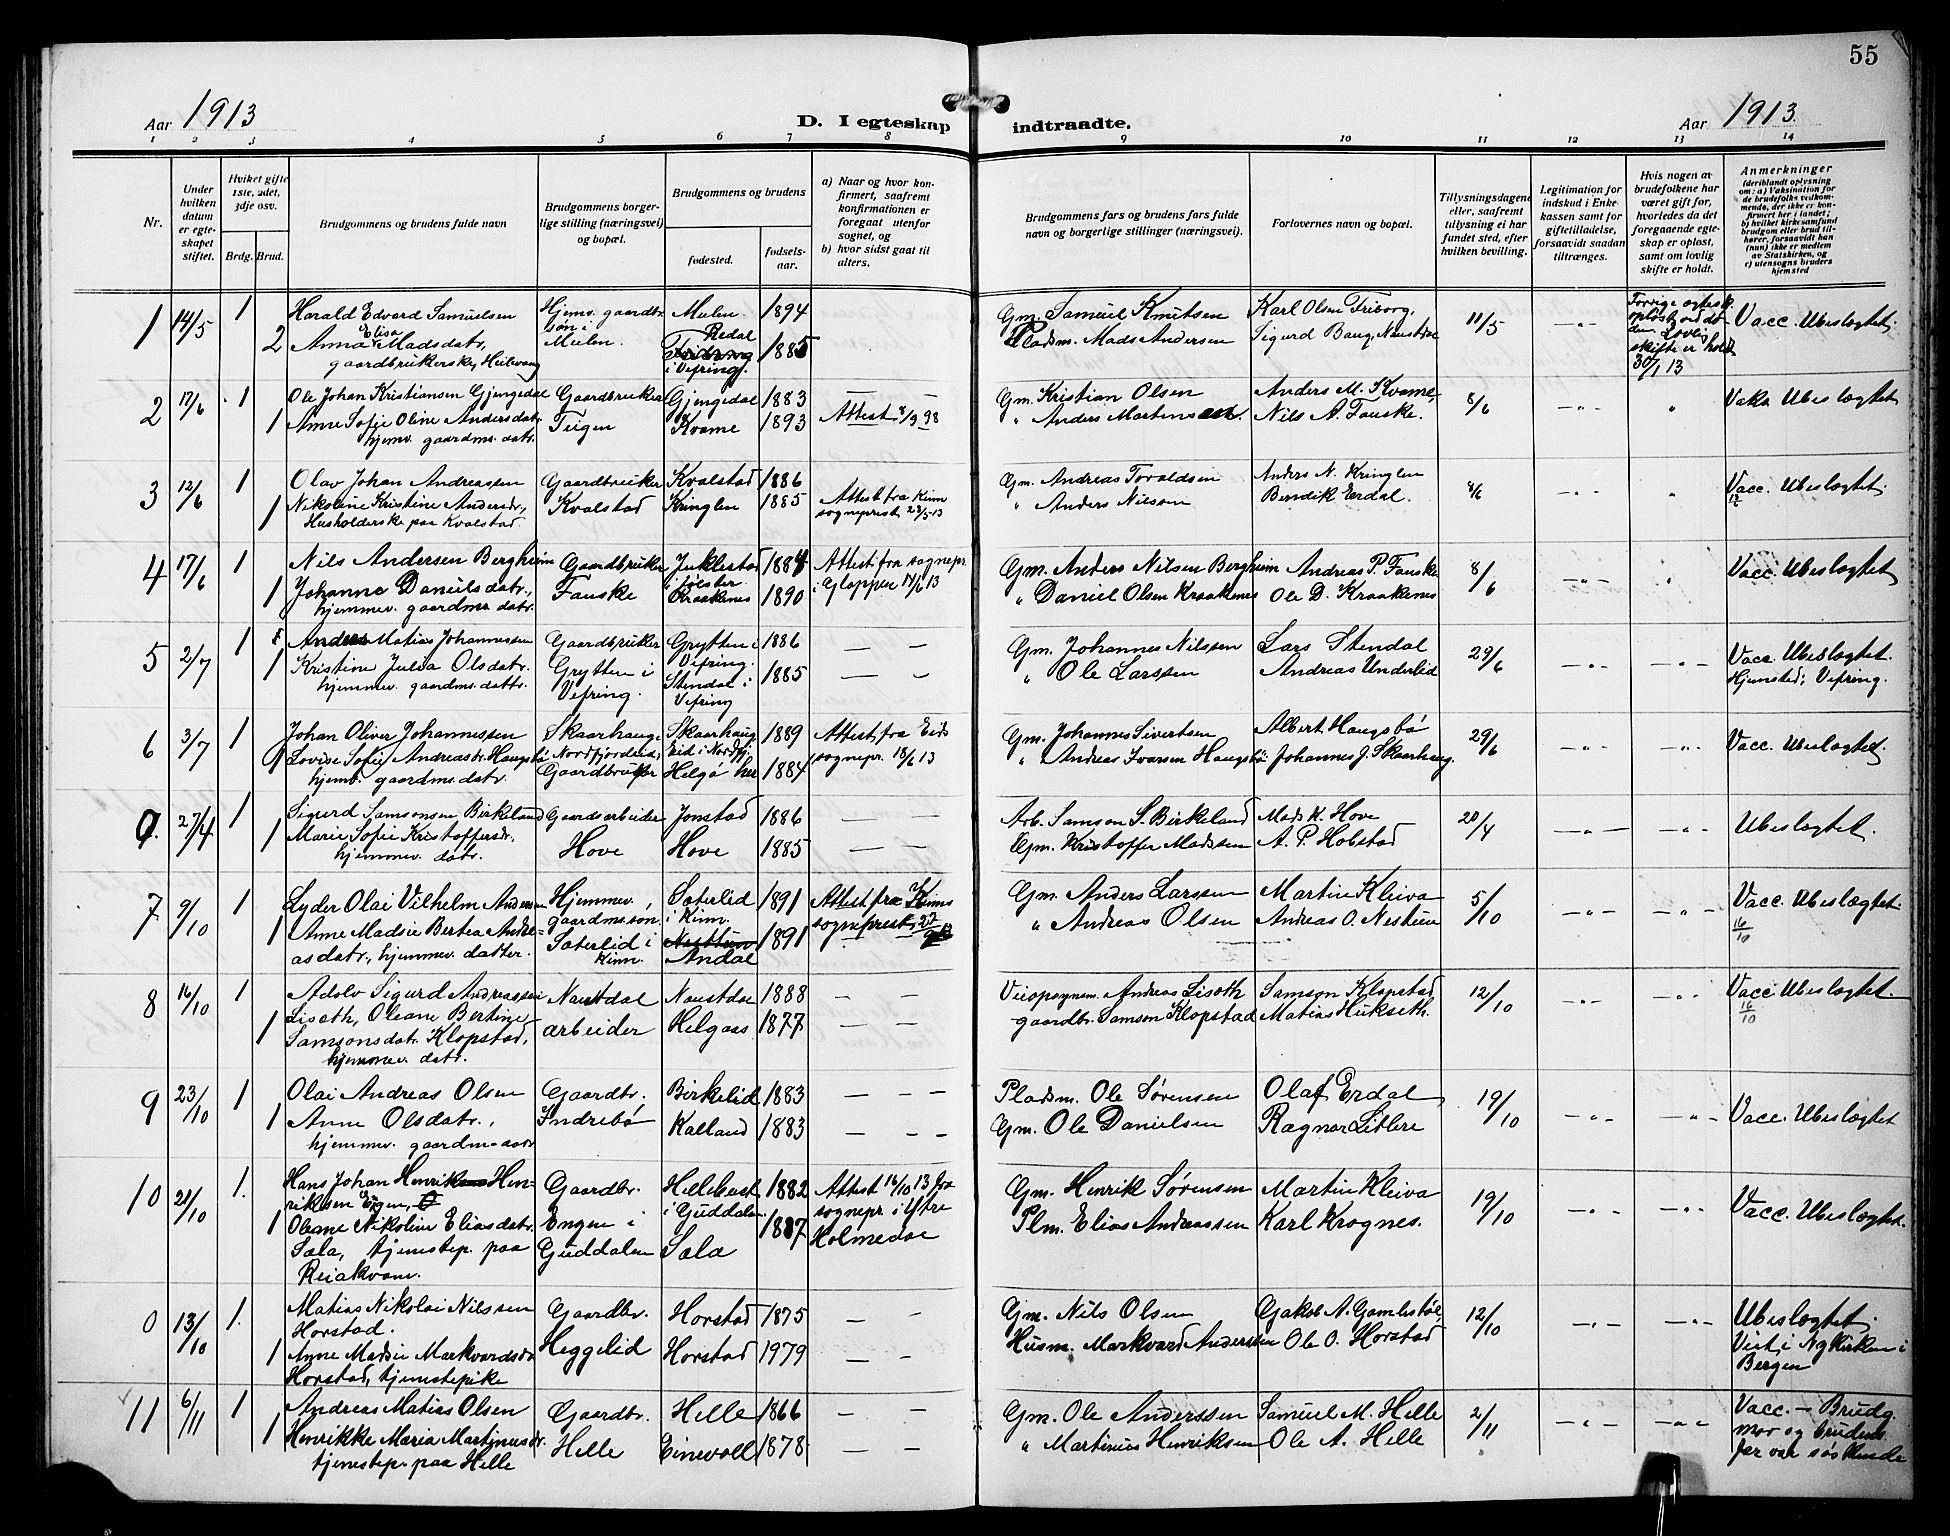 55
Aar 1913
D. I egteskap indtraadte.
Aar 1913.
1 2 3 4 5 6 7 8 9 10 11 12 13 14
Nr.
Under hvilken datum er egteskapet stiftet.
Hvilket gifte 1ste, 2det, 3dje osv.
Brdg. Brud.
Brudgommens og brudens fulde navn
Brudgommens borgerlige stilling (næringsvei) og bopæl.
Brudgommens og brudens
fødested.
fødselsaar.
a) Naar og hvor konfirmert, saafremt konfirmationen er foregaat utenfor sognet, og
b) hvor sidst gaat til alters.
Brudgommens fars og brudens fars fulde navn og borgerlige stillinger (næringsvei).
Forlovernes navn og bopæl.
Tillysningsdagene eller, saafremt tillysning ei har fundet sted, efter hvilken bevilling.
Legitimation for indskud i Enkekassen samt for giftetilladelse, forsaavidt saadan tiltrænges.
Hvis nogen av brudefolkene har været gift før, hvorledes da det foregaaende egteskap er opløst, samt om lovlig skifte er holdt.
Anmerkninger
(deriblandt oplysning om: a) Vaksination for de brudefolks vedkommende, der ikke er konfirmert her i landet; b) hvilket kirkesamfund brudgom eller brud tilhører, forsaavidt han (hun) ikke er medlem av Statskirken, og c) utensogns bruders hjemsted
1 14/5 1 Harald Edvard Samuelsen Hjemv. gaardbr. Mulen 1894 Gm. Samuel Knutsen Karl Olsen Friborg, 11/5 Vacc. Ubeslægtet.
søn i Mulen
2 Anna Elisa Madsdatr. Redal i Vefring. 1885 Pladsm. Mads Andersen Sigurd Baug, Naustdal
gaardbrukerske,
skifte er holdt
30/1 13
2 17/6 1 Ole Johan Kristiansen Gjengedal Gaardbruker Gjengedal 1883 Gm. Kristian Olsen Anders M. Kvame, 8/6 Vaks. Ubeslægtet
1 Anne Sofie Oline Andersdatr. Kvame 1893 Attest 4/9 98 " Anders Martens Nils A. Fauske.
hjemv. gaardms. datr.
3 12/6 1 Olav Johan Andreassen Gaardbruker Kvalstad 1886 Gm. Andreas Toraldsen Anders N. Kringlen 8/6 Vacc. Ubeslægtet.
1 Nikoline Kristine Andersdr., Kvalstad Kringlen 1885 Attest fra Kinn " Anders Nilsen Bendik Erdal.
Husholderske paa Kvalstad. sogneprest 23/5 13
4 17/6 1 Nils Andersen Bergheim Gaardbruker Juklestad i Jølster 1884 Attest fra sognepr. Gm. Anders Nilsen Bergheim Andreas P. Fauske 8/6 Vacc. Ubeslægtet
1 Johanne Danielsdatr., Fauske Kraakenes 1890 i Gloppen 17/6 13 " Daniel Olsen Kraakenes Ole D. Kraakenes
hjemmev. gaardms datr.
5 2/7 1 Anders Matias Johannessen Gaardbruker Grytten i Vefring. 1886 Gm. Johannes Nilssen Lars Stendal 29/6 Vacc. Ubeslægtet.
1 Kristine Julia Olsdatr. Grytten i Vefring. Stendal i Vefring 1885 " Ole Larssen Andreas Underlid Hjemsted: Vefring.
hjemmev. gaardms. dattr.
6 3/7 1 Johan Oliver Johannessen Skaarhaug i Skaarhaug 1889 Attest fra Eids Gm. Johannes Sivertsen Albert Haugsbø 29/6 Vacc. Ubeslægtet.
1 Lovise Sofie Andreasdr. Haugsbø Nordfjordeid, Eid i Nordfj. sognepr. 18/6 13 " Andreas Ivarsen Haugsbø Johannes J. Skaarhaug.
hjemv. gaardms. datr. Gaardbruker Helgø her 1884
0. 27/4 1 Sigurd Samsonsen Birkeland Gaardsarbeider Jonstad 1886 Arb. Samson S. Birkeland Mads K. Hove 20/4 Ubeslægtet.
1 Marie Sofie Kristoffersdr. Hove Hove 1885 Gm. Kristoffer Madssen A. P. Hobstad
hjemmev. datr.
7 9/10 1 Lyder Olai Vilhelm Andersen Hjemmev., Sæterlid i Kinn. 1891 Attest fra Kinns Gm. Anders Larssen Martin Kleiva 5/10 Vacc. Ubeslægtet.
1 Anne Madsie Bertea Andre- gaardms. søn sogneprest " Andreas Olsen Andreas O. 16/10
asdatr., hjemmev. datter. Sæterlid i Kinn. Andal 1891
8 16/10 1 Adolv Sigurd Andreassen Naustdal Naustdal 1888 Andreas Liseth Samson Klopstad 12/10 Vacc. Ubeslægtet.
1 Liseth, Oleane Bertine arbeider Helgaas 1877 gaardbr. Samson Klopstad Matias Hukseth. 16/10
Samsonsdatr. Klopstad,
hjemmev. datr.
9 23/10 1 Olai Andreas Olsen Gaardbr. Birkelid 1883 Pladsm. Ole Sørensen Olaf Erdal, 19/10 Vacc. Ubeslægtet
1 Anne Olsdatr., Indrebø Kalland 1883 Gm. Ole Danielsen Ragnar Litlere
hjemmev. gaardm.
10 21/10 1. Hans Johan Hen- Gaardbr. i Guddalen. 1882 Attest 16/10 13 fra Gm. Henrik Sørensen Martin Kleiva 19/10 Vacc. Ubeslægtet.
riksen Engen, Engen i sognepr. i Ytre
1 Oleane Nikoline Eliasdatr. Guddalen Sæla 1887 Holmedal Plm. Elias Andreassen Karl Krognes.
Sæla, tjenestep. paa
Reiakvam.
0 13/10 1. Matias Nikolai Nilssen Gaardbr. Horstad 1875 Gm. Nils Olsen Jakob A. Gamlestøl, 12/10 Ubeslægtet.
Horstad. Heggelid Viet i Nykirken i
1 Anne Madsie Markvardsdr. Horstad 1979 Husm. Markvard Anderssen Ole O. Horstad Bergen
Horstad, tjenestepike
11 6/11 1 Andreas Matias Olsen Gaardbr. Helle 1866 Gm. Ole Anderssen Samuel M. Helle 2/11 Vacc. — Brudg.
1 Henrikke Maria Martinusdr. Helle Einevoll 1878 " Martinus Henriksen Ole A. Helle mor og brudens
tjenestep. paa Helle far var søskende